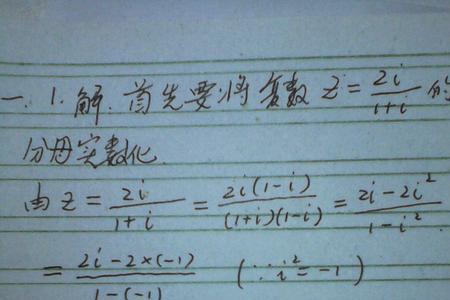 一.1.解.首先要将复数 z = 2i/(1+i) 的
分母实数化
由 z = 2i/(1+i) = 2i(1-i)/((1+i)(1-i)) = (2i-2i²)/(1-i²)
= (2i-2×(-1))/(1-(-1)) (∵i²=-1)